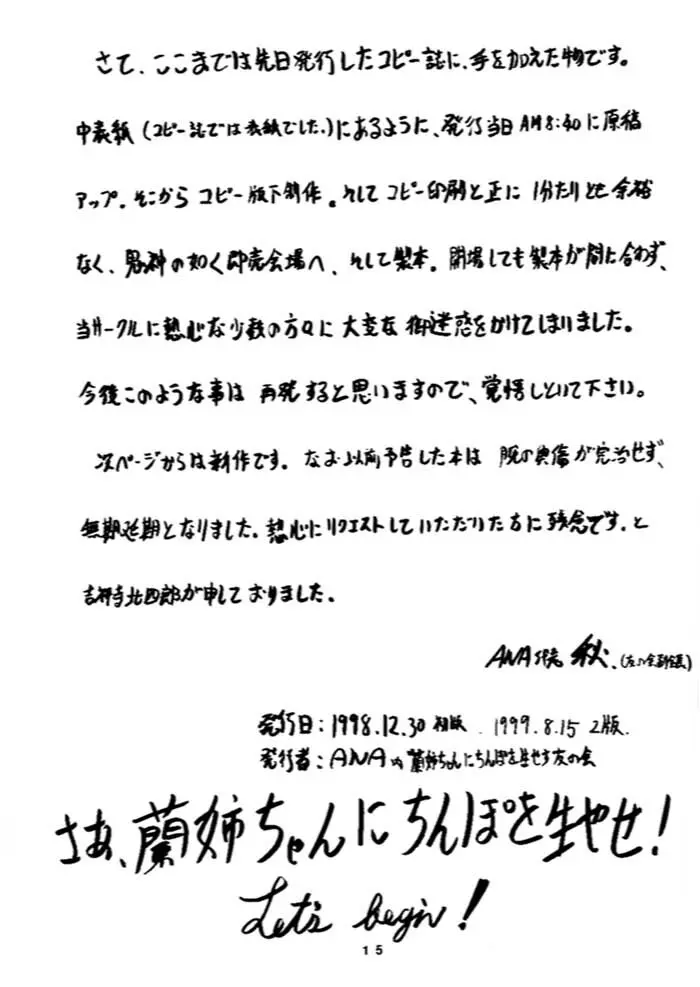 さて、ここまでは先日発行したコピー誌に、手を加えた物です。
中表紙(コピー誌では表紙でした。)にあるように、発行当日AM8:40に原稿
アップ。そこからコピー版下制作。そしてコピー印刷と正に1分たりとも余裕
なく、の如く即売会場へ、そして製本。開場しても製本が間に合わず、
当サークルに熱心な少数の方々に大変な御迷惑をかけてしまいました。
今後このような事は再発すると思いますので、覚悟しといて下さい。
次ページからは新作です。なお以前予告した本は腕の負傷が完治せず、
無期延期となりました。熱心にリクエストしていただいた方に残念です。と
吉祥寺北四郎が申しておりました。
ANA 秋
発行日:1998.12.30 初版. 1999.8.15 2版.
発行者:ANA内 蘭姉ちゃんにちんぽを生やす友の会
さあ、蘭姉ちゃんにちんぽを生やせ!
Let's begin!
15